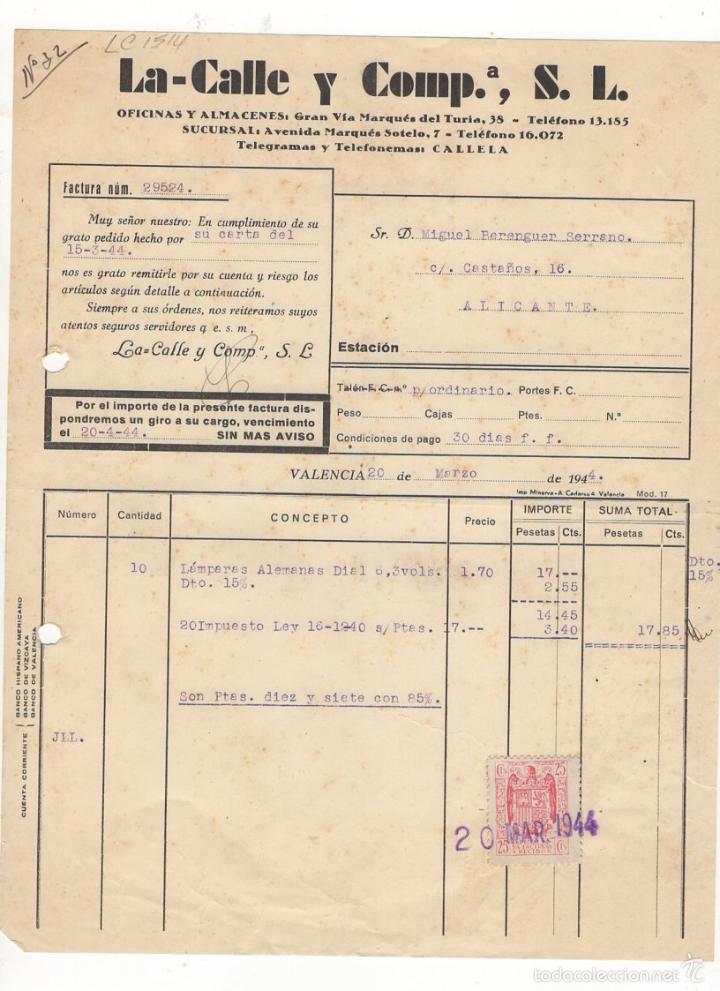 Nº 32
LC 1514
La-Calle y Comp.ª, S. L.
OFICINAS Y ALMACENES: Gran Vía Marqués del Turia, 38 - Teléfono 13.185
SUCURSAL: Avenida Marqués Sotelo, 7 - Teléfono 16.072
Telegramas y Telefonemas: CALLELA
Factura núm. 29524.
Muy señor nuestro: En cumplimiento de su
grato pedido hecho por su carta del
15-3-44.
nos es grato remitirle por su cuenta y riesgo los
artículos según detalle a continuación.
Siempre a sus órdenes, nos reiteramos suyos
atentos seguros servidores q e. s. m.
La=Calle y Comp.ª, S. L
Por el importe de la presente factura dis-
pondremos un giro a su cargo, vencimiento
el 20-4-44. SIN MAS AVISO
Sr. D. Miguel Berenguer Serrano.
c/. Castaños, 16.
ALICANTE.
Estación
Talón F. C. nº p/ordinario. Portes F. C.
Peso Cajas Ptes. N.º
Condiciones de pago 30 dias f. f.
VALENCIA 20 de Marzo de 1944.
Imp Minerva-A Cadarso, 4 Valencia Mod. 17
Número Cantidad CONCEPTO Precio IMPORTE SUMA TOTAL
Pesetas Cts. Pesetas Cts.
10 Lámparas Alemanas Dial 6,3vols. 1.70 17.-- Dto.
Dto. 15%. 2.55 15%
14.45
20Impuesto Ley 16-1940 s/Ptas. 17.-- 3.40 17.85
Son Ptas. diez y siete con 85%.
JLL.
CUENTA CORRIENTE
BANCO HISPANO AMERICANO
BANCO DE VIZCAYA
BANCO DE VALENCIA
Cts 25
20 MAR. 1944
25 Cts
FACTURAS
Y RECIBOS
todocoleccion.net